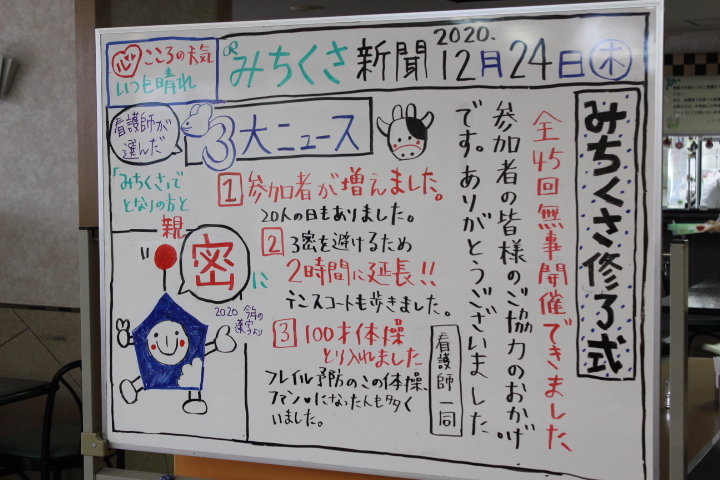 心 こころの天気
いつも晴れ
みちくさ新聞
2020.
12月24日木
みちくさ修了式
全45回無事開催できました、
参加者の皆様のご協力のおかげ
です。ありがとうございました
看護師一同
看護師が
選んだ
3大ニュース
1 参加者が増えました。
20人の日もありました。
2 3密を避けるため
2時間に延長!!
テニスコートも歩きました。
3 100才体操
とり入れました
フレイル予防のこの体操、
ファン♥になった人も多く
いました。
「みちくさ」で
となりの方と
親
密に
2020 今年の
漢字より